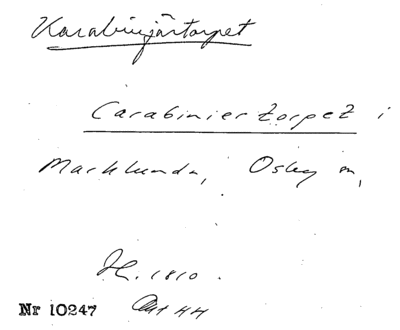 Karabinjärtorpet
Carabiniertorpet i
Marklunda, Osby sn,
Hl. 1810.
Nr 10247